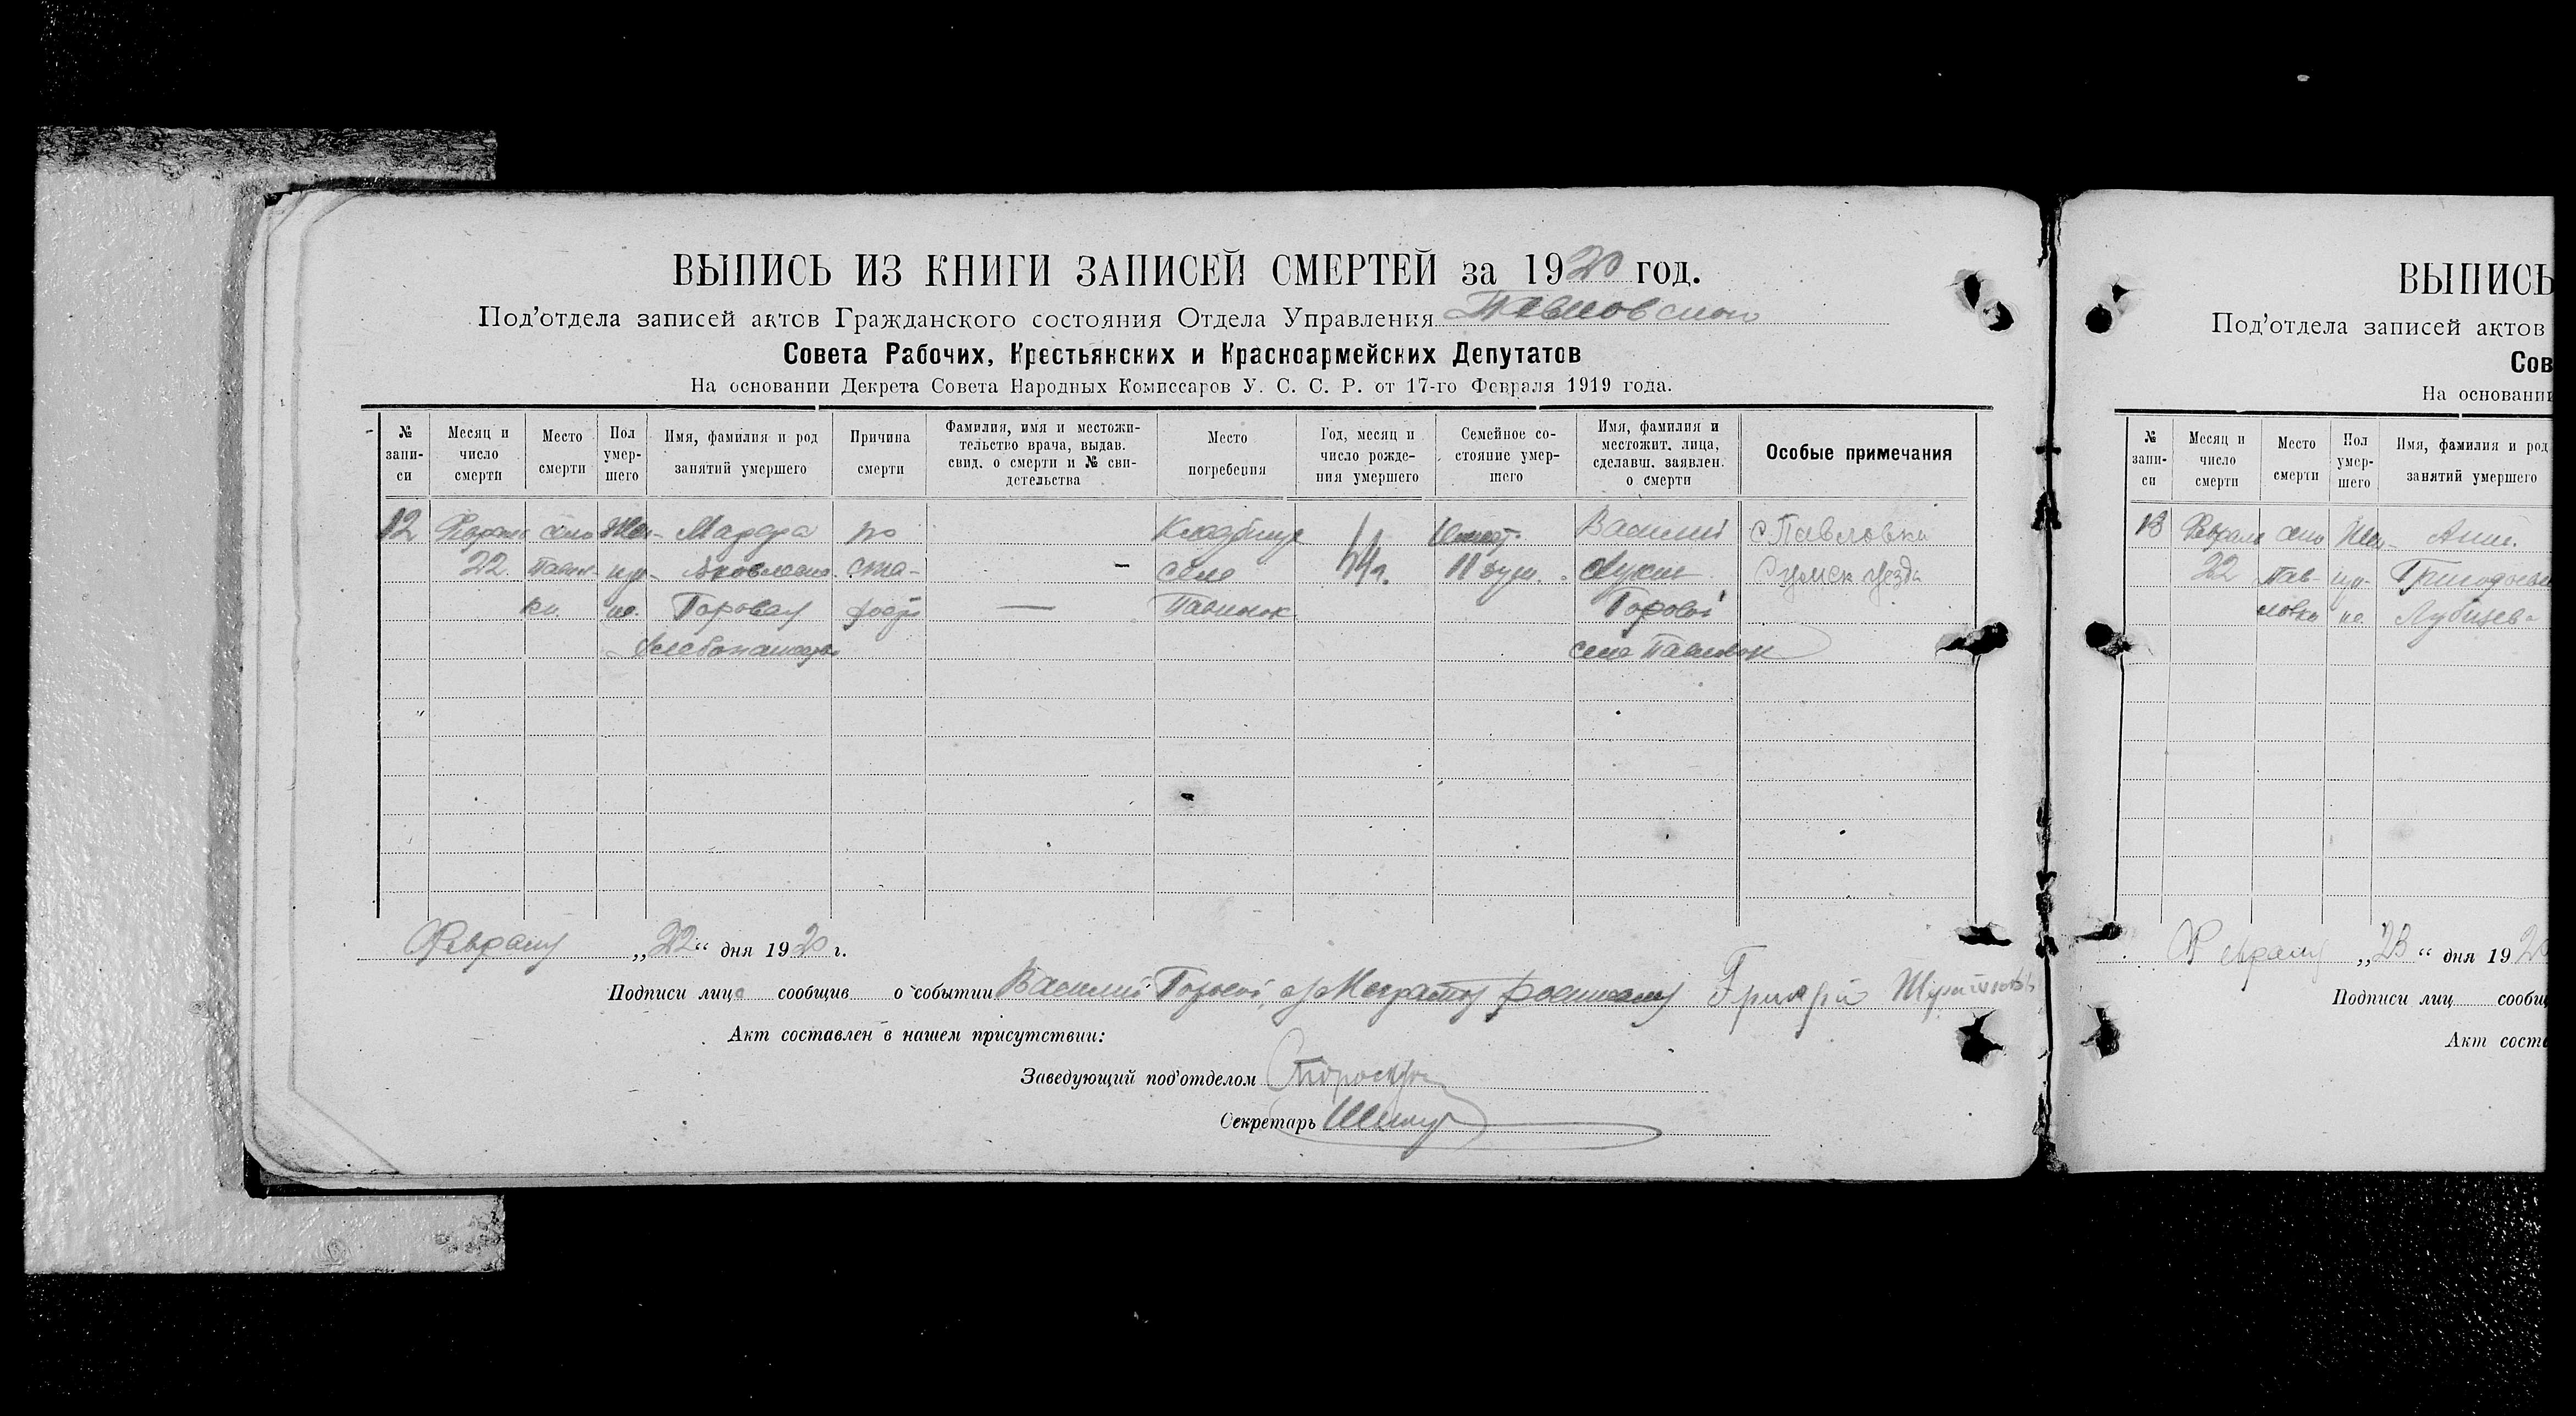 ВЫПИСЬ ИЗ КНИГИ ЗАПИСЕЙ СМЕРТЕЙ за 1920 год.
Под'отдела записей актов Гражданского состояния Отдела Управления Павловской
Совета Рабочих, Крестьянских и Красноармейских Депутатов
На основании Декрета Совета Народных Комиссаров У. С. С. Р. от 17-го Февраля 1919 года.
№ запи-си
Месяц и число смерти
Место смерти
Пол умер-шего
Имя, фамилия и род занятий умершего
Причина смерти
Фамилия, имя и местожи-тельство врача, выдав. свид. о смерти и № сви-детельства
Место погребения
Год, месяц и число рожде-ния умершего
Семейное со-стояние умер-шего
Имя, фамилия и местожит. лица, сделавш. заявлен. о смерти
Особые примечания
12 село Жен- по Кладбище Василий с. Павловки
22 Яковлевна ста- селе 11 душ. Сумск уезда
ки. Горовая Горовой
Хлебопашец селе
Февраля „22“ дня 1920 г.
Подписи лица сообщив о событии Василий Горовой, Григорий
Акт составлен в нашем присутствии:
Заведующий под'отделом
Секретарь
ВЫПИСЬ
Под'отдела записей актов
Сов
На основании
№ запи-си
Месяц и число смерти
Место смерти
Пол умер-шего
Имя, фамилия и род занятий умершего
13 Февраля село Жен- Анна
22 Пав-
ловка
Февраля „23“ дня 1920
Подписи лиц сообщ
Акт соста